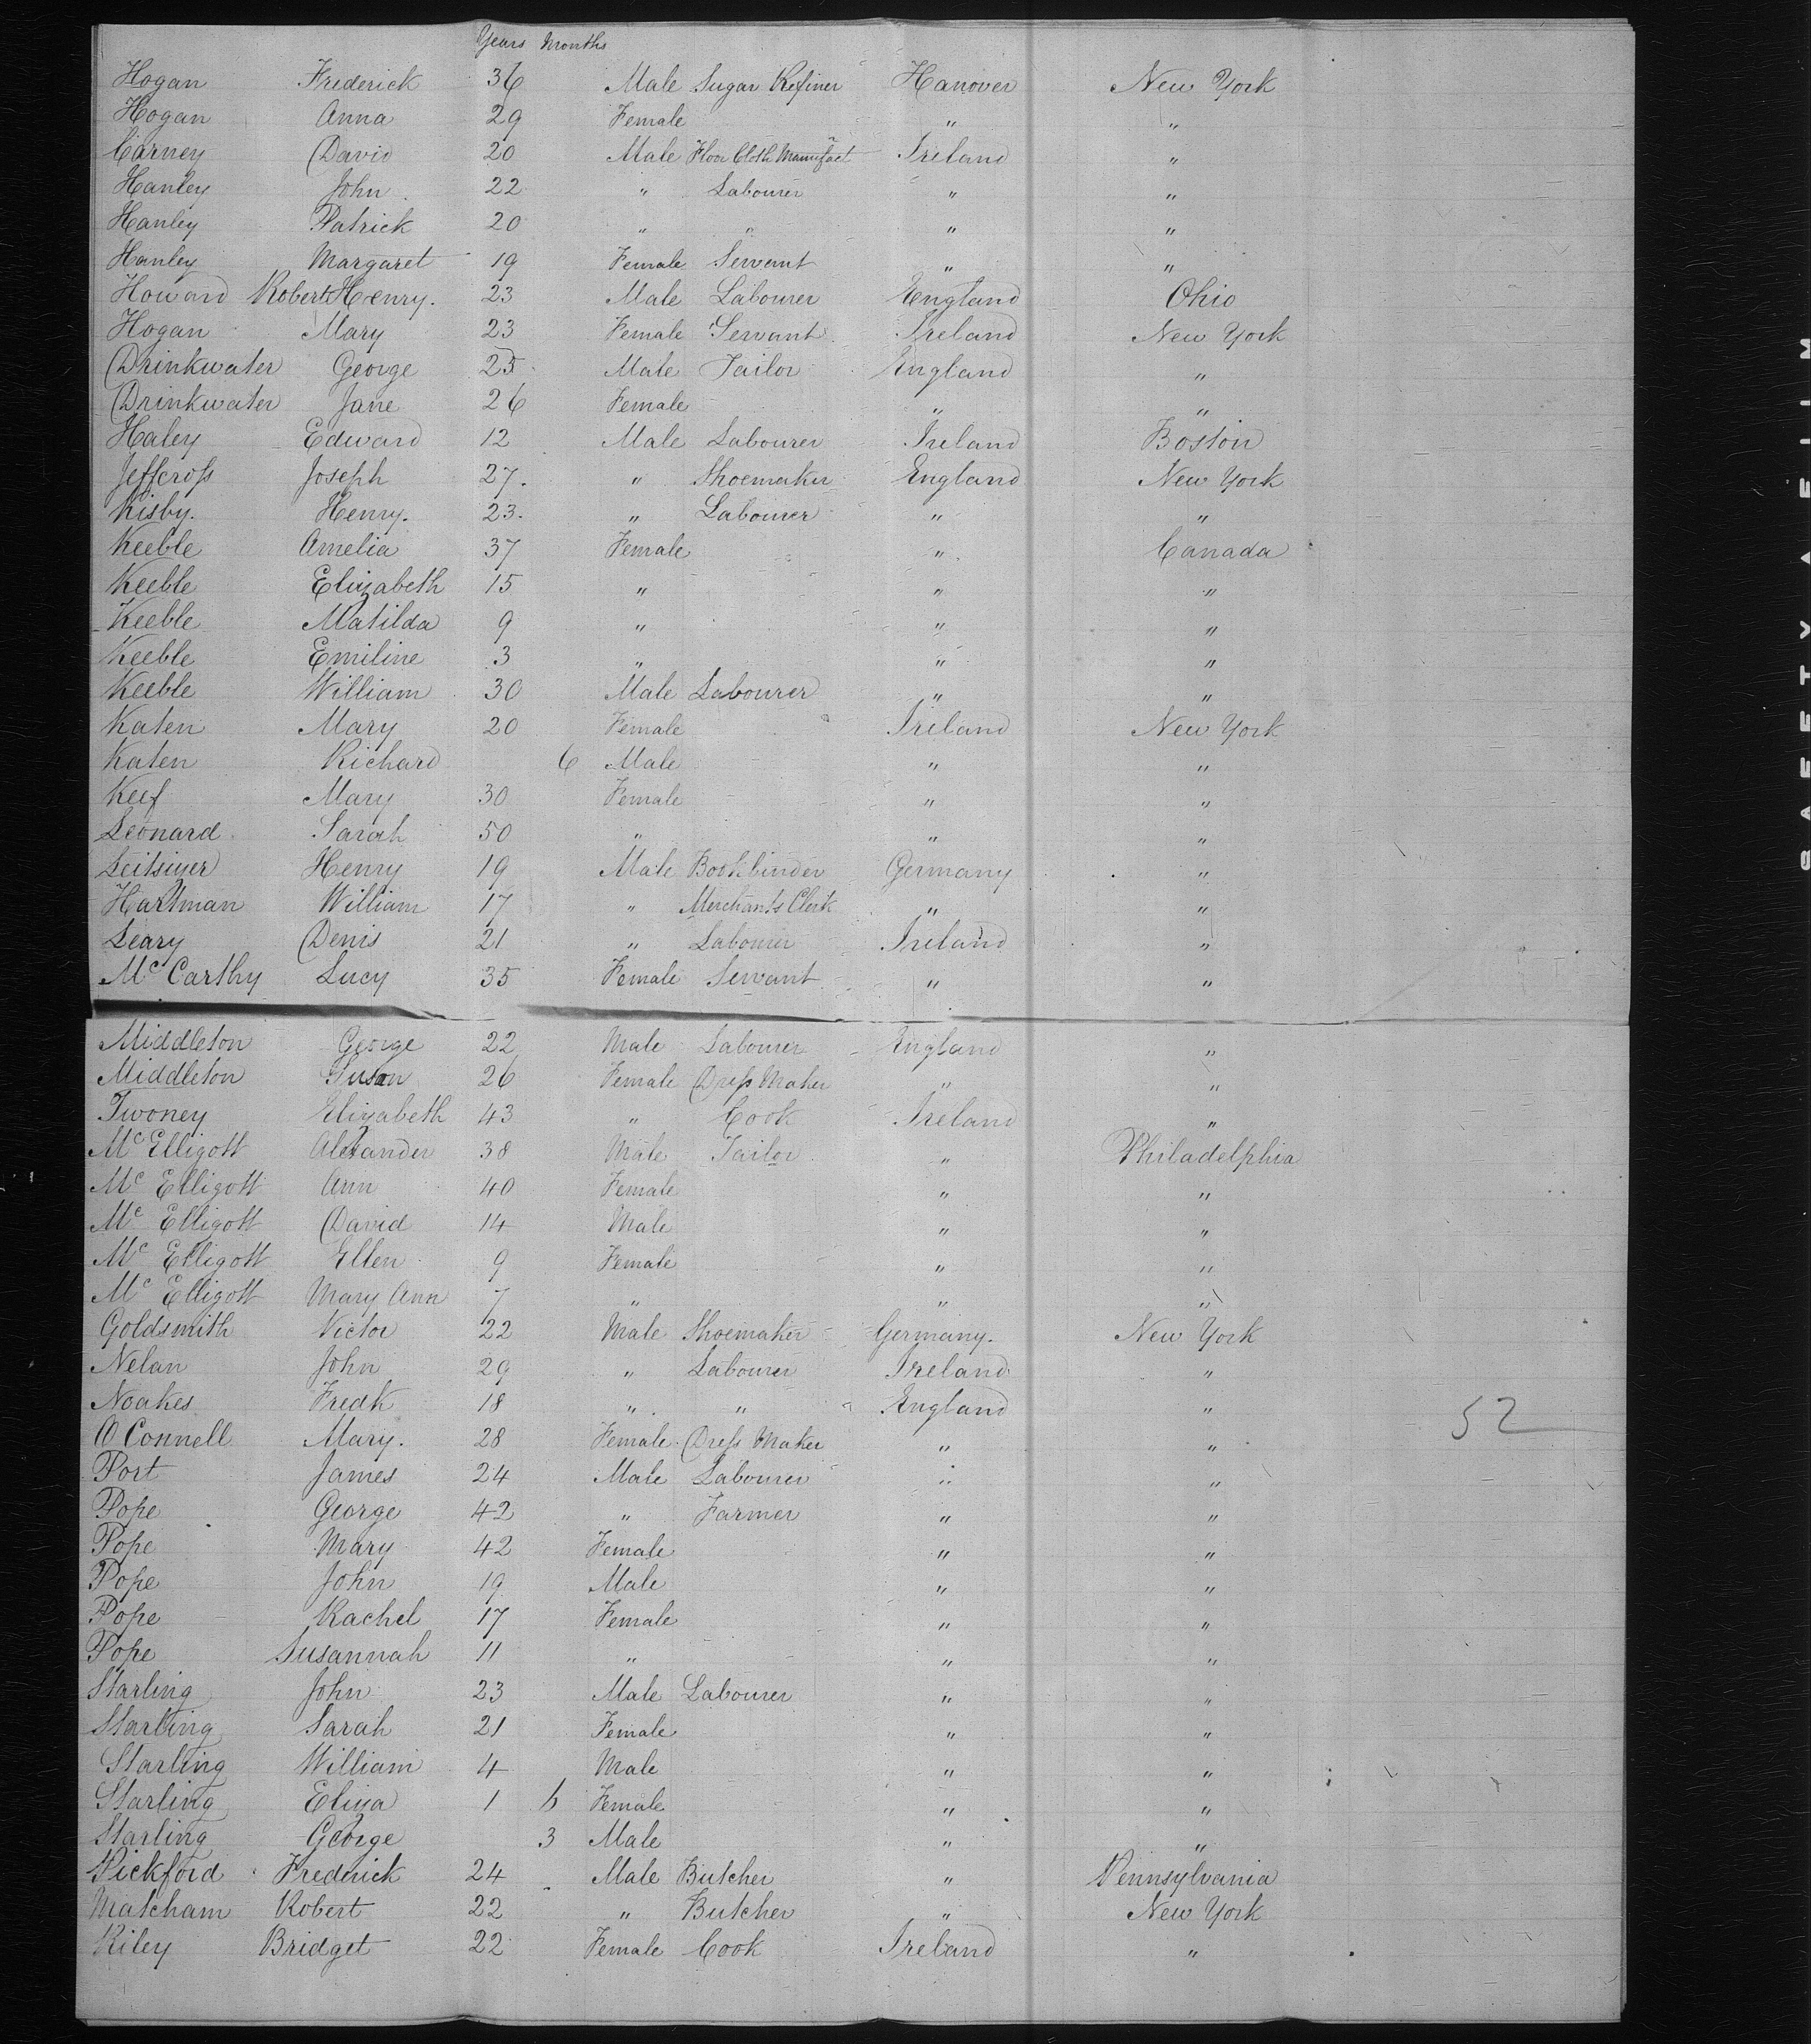 Years Months
Hogan Frederick 36 Male Sugar Refiner Hanover New York
Hogan Anna 29 Female " "
Carney David 20 Male Floor Cloth Manufact Ireland "
Hanley John 22 " Labourer " "
Hanley Patrick 20 " " " "
Hanley Margaret 19 Female Servant " "
Howard Robert Henry. 23 Male Labourer England Ohio
Hogan Mary 23 Female Servant Ireland New York
Drinkwater George 25 Male Tailor England "
Drinkwater Jane 26 Female " "
Haley Edward 12 Male Labourer Ireland Boston
Jeffcross Joseph 27. " Shoemaker England New York
Kisby. Henry. 23. " Labourer " "
Keeble Amelia 37 Female " Canada
Keeble Elizabeth 15 " " "
Keeble Matilda 9 " " "
Keeble Emiline 3 " " "
Keeble William 30 Male Labourer " "
Katen Mary 20 Female Ireland New York
Katen Richard 6 Male " "
Keef Mary 30 Female " "
Leonard Sarah 50 " " "
Henry 19 Male Bookbinder Germany "
Hartman William 17 " Merchants Clerk " "
Leary Denis 21 " Labourer Ireland "
Mc Carthy Lucy 35 Female Servant " "
Middleton George 22 Male Labourer England "
Middleton Susan 26 Female Dress Maker " "
Twoney Elizabeth 43 " Cook Ireland "
Mc Elligott Alexander 38 Male Tailor " Philadelphia
Mc Elligott Ann 40 Female " "
Mc Elligott David 14 Male " "
Mc Elligott Ellen 9 Female " "
Mc Elligott Mary Ann 7 " " "
Goldsmith Victor 22 Male Shoemaker Germany. New York
Nelan John 29 " Labourer Ireland "
Noakes Fredk 18 " " England "
O Connell Mary. 28 Female Dress Maker " "
52
Port James 24 Male Labourer " "
Pope George 42 " Farmer " "
Pope Mary 42 Female " "
Pope John 19 Male " "
Pope Rachel 17 Female " "
Pope Susannah 11 " " "
Starling John 23 Male Labourer " "
Starling Sarah 21 Female " "
Starling William 4 Male " "
Starling Eliza 1 6 Female " "
Starling George 3 Male " "
Pickford Frederick 24 Male Butcher " Pennsylvania
Matcham Robert 22 " Butcher " New York
Riley Bridget 22 Female Cook Ireland "
SAFETY FILM